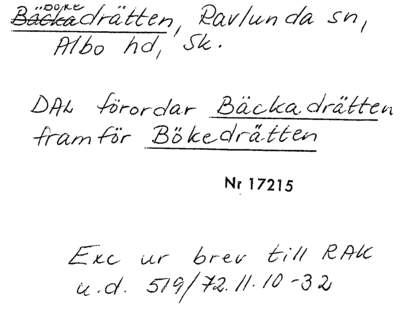 Böke
Bäckadrätten, Ravlunda sn,
Albo hd, Sk.
DAL förordar Bäckadrätten
framför Bökedrätten
Nr 17215
Exc ur brev till RAK
u.d. 519/72.11.10-32